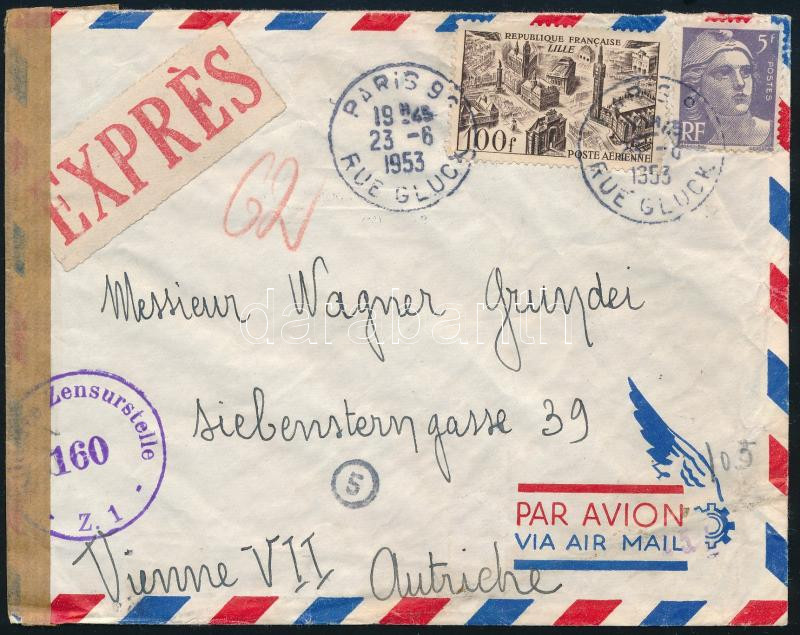 EXPRÈS
RÉPUBLIQUE FRANÇAISE
LILLE
100f
POSTE AÉRIENNE
5f
POSTES
RF
PARIS 9
19 H45
23 -6
1953
RUE GLUCK
1953
RUE GLUCK
62
Messieur Wagner
darabanth
siebensterngasse 39
Zensurstelle
160
Z. 1
5
105
PAR AVION
VIA AIR MAIL
Vienne VII Autriche